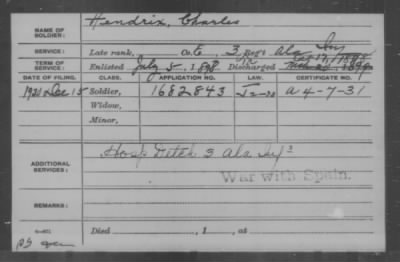 NAME OF SOLDIER: Hendrix, Charles
SERVICE: Late rank, Co. E, 3 Reg't Ala Inf
TERM OF SERVICE: Enlisted July 5, 1898 Discharged
DATE OF FILING. CLASS. APPLICATION NO. LAW. CERTIFICATE NO.
1920 Dec 15 Soldier, 1682843 A 4-7-31
Widow,
Minor,
ADDITIONAL SERVICES: Hosp Detch 3 Ala Inf
War with Spain.
REMARKS:
Died , 1 , at